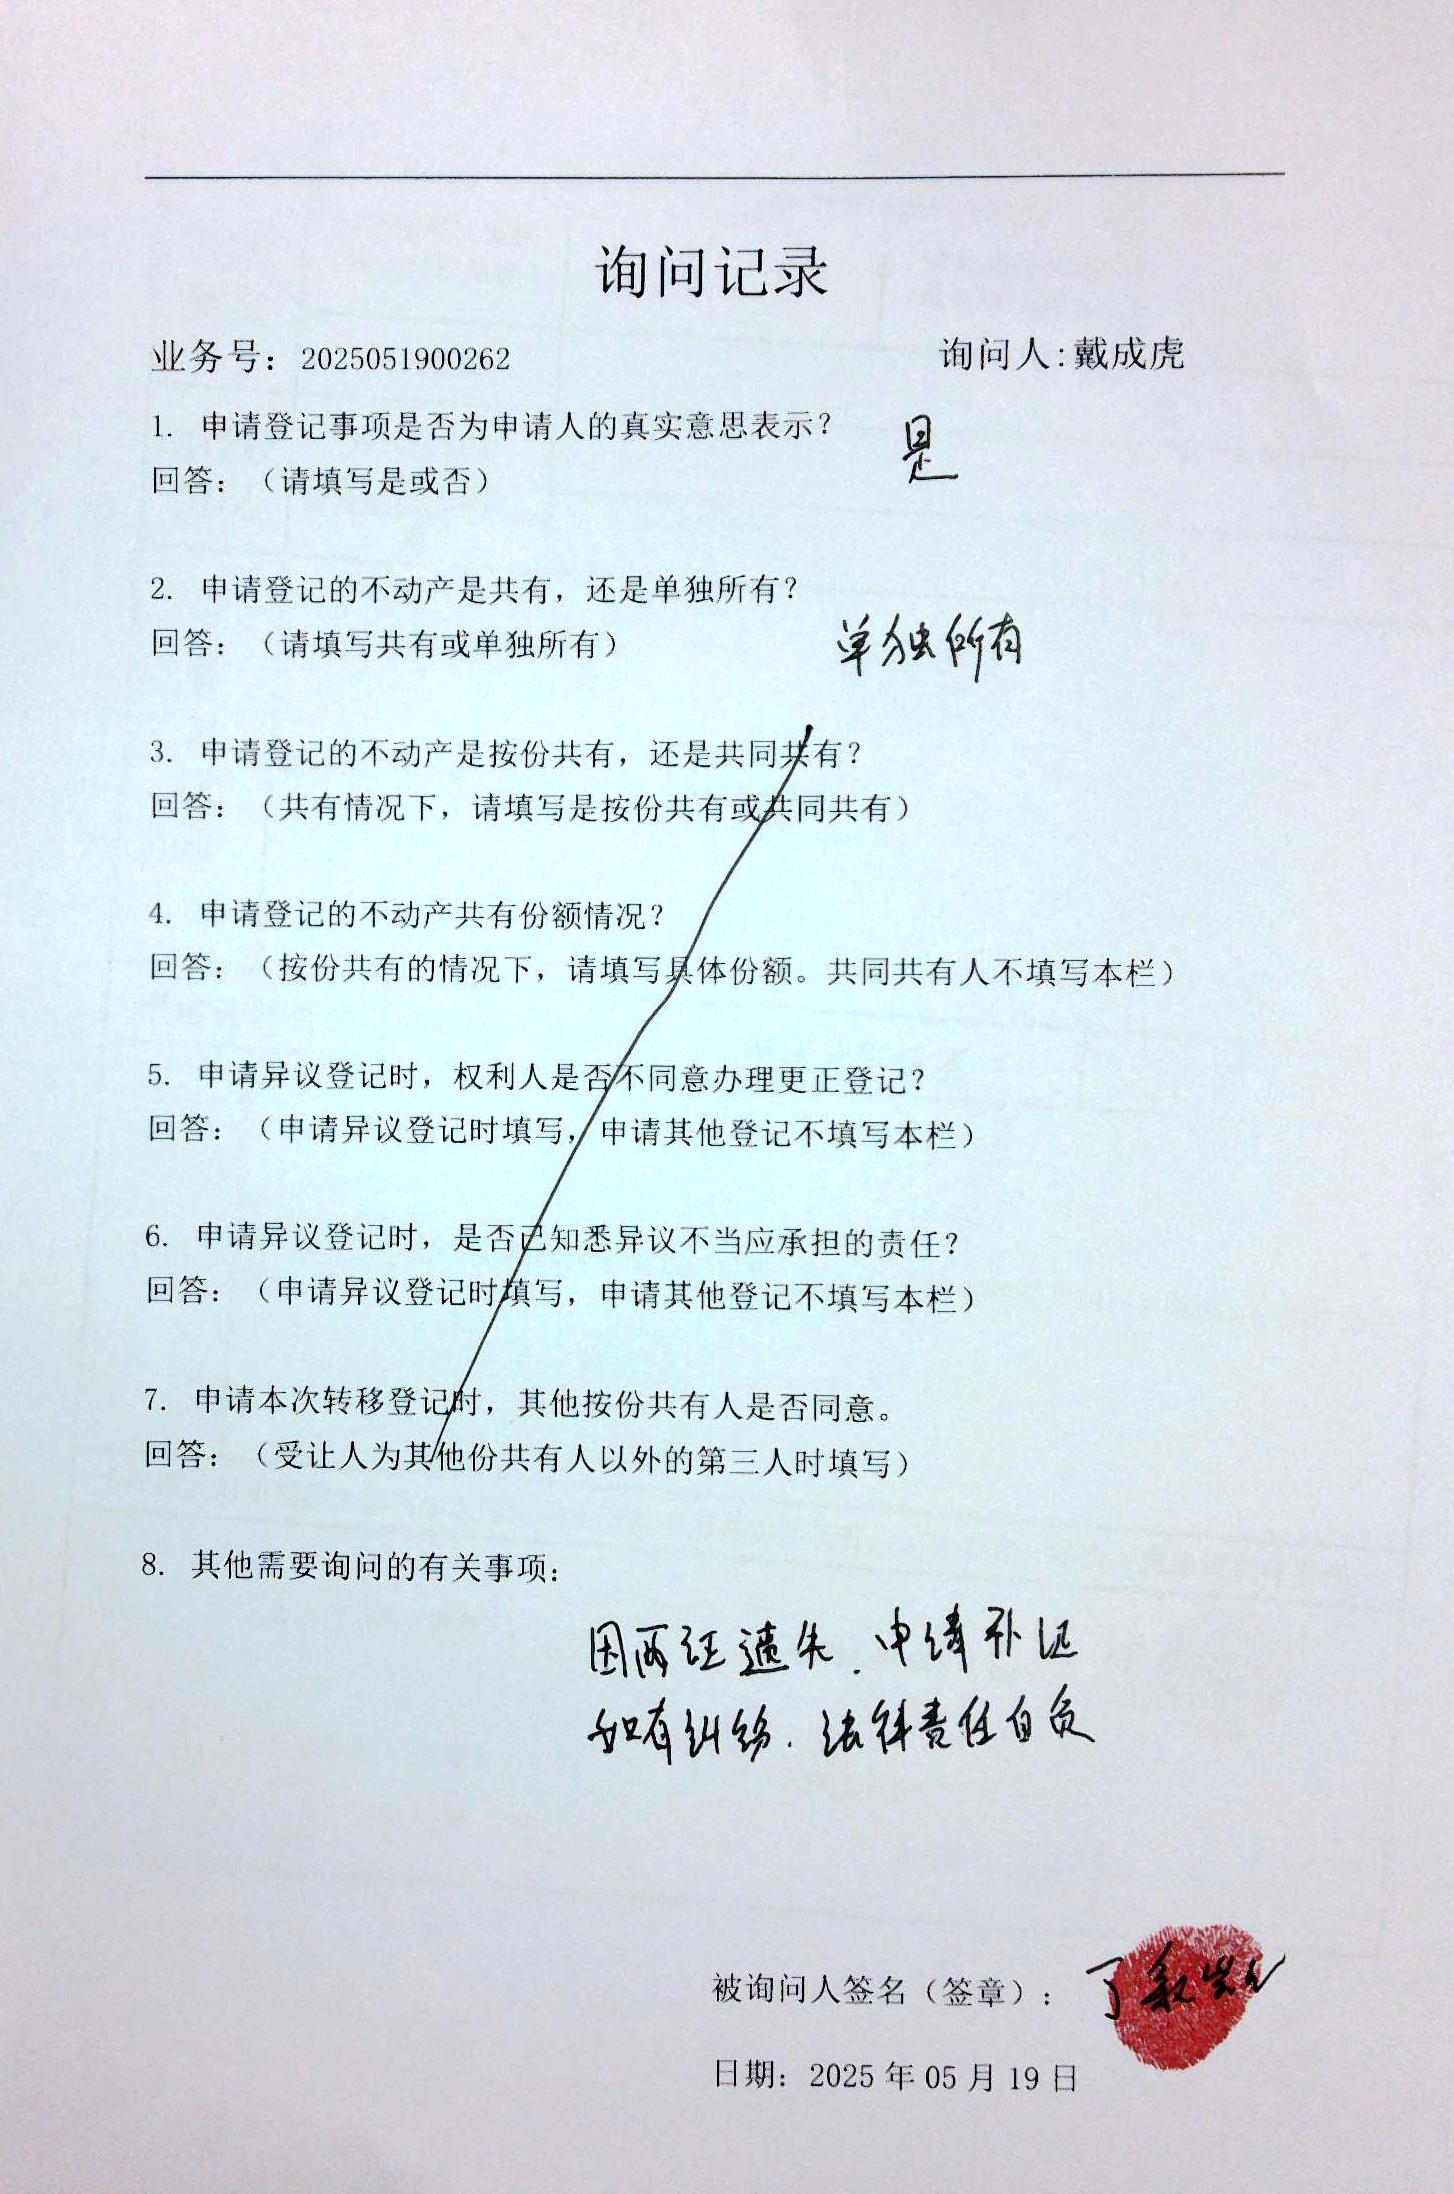 询问记录
业务号：2025051900262 询问人:戴成虎
1. 申请登记事项是否为申请人的真实意思表示？
回答：（请填写是或否） 是
2. 申请登记的不动产是共有，还是单独所有？
回答：（请填写共有或单独所有） 单独所有
3. 申请登记的不动产是按份共有，还是共同共有？
回答：（共有情况下，请填写是按份共有或共同共有）
4. 申请登记的不动产共有份额情况？
回答：（按份共有的情况下，请填写具体份额。共同共有人不填写本栏）
5. 申请异议登记时，权利人是否不同意办理更正登记？
回答：（申请异议登记时填写，申请其他登记不填写本栏）
6. 申请异议登记时，是否已知悉异议不当应承担的责任？
回答：（申请异议登记时填写，申请其他登记不填写本栏）
7. 申请本次转移登记时，其他按份共有人是否同意。
回答：（受让人为其他份共有人以外的第三人时填写）
8. 其他需要询问的有关事项：
因两证遗失．申请补证
如有纠纷．法律责任自负
被询问人签名（签章）：
日期：2025年05月19日